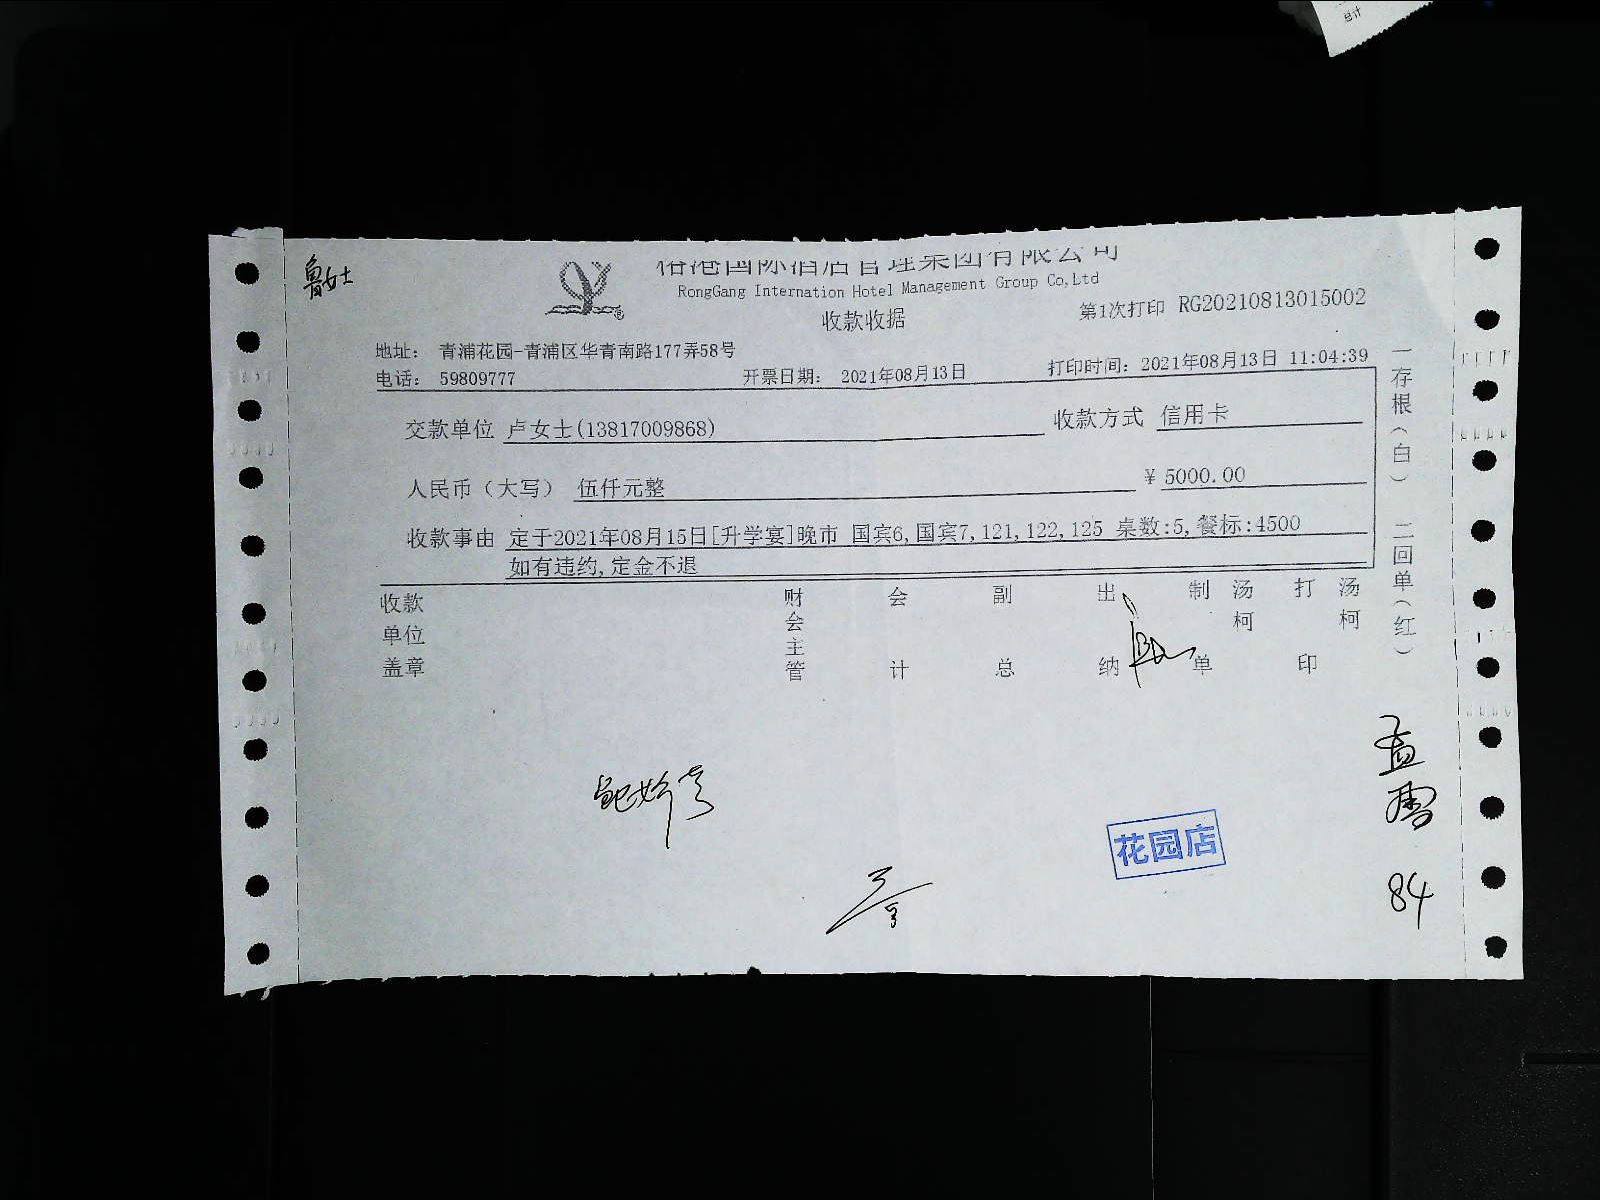 总计
鲁女士
国际酒店管理集团有限公司
RongGang Internation Hotel Management Group Co,Ltd
收款收据
第1次打印 RG20210813015002
地址： 青浦花园-青浦区华青南路177弄58号
电话： 59809777 开票日期： 2021年08月13日 打印时间：2021年08月13日 11:04:39
交款单位 卢女士(13817009868) 收款方式 信用卡
人民币（大写） 伍仟元整 ¥ 5000.00
收款事由 定于2021年08月15日[升学宴]晚市 国宾6,国宾7,121,122,125 桌数:5,餐标:4500
如有违约,定金不退
收款单位盖章 财会主管 会计 副总 出纳 制单 汤柯 打印 汤柯
一存根（白） 二回单（红）
花园店
84